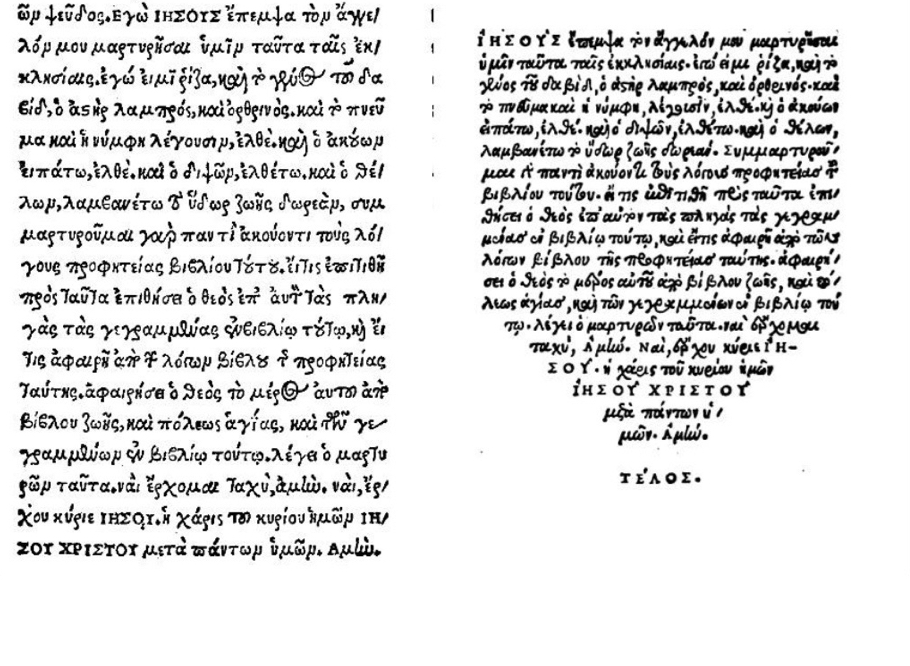 ῶν ψεῦδος. Εγὼ ΙΗΣΟΥΣ ἔπεμψα τὸν ἄγγε/
λόν μου μαρτυρῆσαι ὑμῖν ταῦτα ταῖς ἐκ/
κλησίαις. ἐγώ εἰμι ῥίζα, καὶ τὸ γένος τοῦ δα
βίδ, ὁ ἀστὴρ λαμπρός, καὶ ὀρθρινός. καὶ τὸ πνεῦ
μα καὶ ἡ νύμφη λέγουσιν, ἐλθέ. καὶ ὁ ἀκούων
εἰπάτω, ἐλθέ. καὶ ὁ διψῶν, ἐλθέτω. καὶ ὁ θέ/
λων, λαμβανέτω τὸ ὕδωρ ζωῆς δωρεὰν, συμ
μαρτυροῦμαι γὰρ παντὶ ἀκούοντι τοὺς λό/
γους προφητείας βιβλίου τούτου. εἴ τις ἐπιτιθῇ
πρὸς ταῦτα ἐπιθήσει ὁ θεὸς ἐπ' αὐτὸν τὰς πλη/
γὰς τὰς γεγραμμένας ἐν βιβλίῳ τούτῳ, καὶ εἴ
τις ἀφαιρῇ ἀπὸ τῶν λόγων βίβλου τῆς προφητείας
ταύτης. ἀφαιρήσει ὁ θεὸς τὸ μέρος αὐτοῦ ἀπὸ
βίβλου ζωῆς, καὶ πόλεως ἁγίας, καὶ τῶν γε/
γραμμένων ἐν βιβλίῳ τούτῳ. λέγει ὁ μαρτυ
ρῶν ταῦτα. ναὶ ἔρχομαι ταχὺ, ἀμήν. ναὶ, ἔρ/
χου κύριε ΙΗΣΟΥ. ἡ χάρις τοῦ κυρίου ἡμῶν ΙΗ/
ΣΟΥ ΧΡΙΣΤΟΥ μετὰ πάντων ὑμῶν. Αμήν.
ΙΗΣΟΥΣ ἔπεμψα τὸν ἄγγελόν μου μαρτυρῆσαι
ὑμῖν ταῦτα ταῖς ἐκκλησίαις. ἐγώ εἰμι ῥίζα, καὶ τὸ
γένος τοῦ δαβίδ, ὁ ἀστὴρ λαμπρός, καὶ ὀρθρινός. καὶ
τὸ πνεῦμα καὶ ἡ νύμφη, λέγουσιν, ἐλθέ. καὶ ὁ ἀκούων
εἰπάτω, ἐλθέ. καὶ ὁ διψῶν, ἐλθέτω. καὶ ὁ θέλων,
λαμβανέτω τὸ ὕδωρ ζωῆς δωρεάν. Συμμαρτυροῦ/
μαι παντὶ ἀκούοντι τοὺς λόγους προφητείας τοῦ
βιβλίου τούτου. εἴ τις ἐπιτιθῇ πρὸς ταῦτα ἐπι/
θήσει ὁ θεὸς ἐπ' αὐτὸν τὰς πληγὰς τὰς γεγραμ/
μένας ἐν βιβλίῳ τούτῳ, καὶ εἴ τις ἀφαιρῇ ἀπὸ τῶν
λόγων βίβλου τῆς προφητείας ταύτης. ἀφαιρή/
σει ὁ θεὸς τὸ μέρος αὐτοῦ ἀπὸ βίβλου ζωῆς, καὶ πό/
λεως ἁγίας, καὶ τῶν γεγραμμένων ἐν βιβλίῳ τού
τῳ. λέγει ὁ μαρτυρῶν ταῦτα. ναὶ ἔρχομαι
ταχύ, Αμήν. Ναὶ, ἔρχου κύριε ΙΗ-
ΣΟΥ. ἡ χάρις τοῦ κυρίου ἡμῶν
ΙΗΣΟΥ ΧΡΙΣΤΟΥ
μετὰ πάντων ὑ/
μῶν. Αμήν.
ΤΕΛΟΣ.